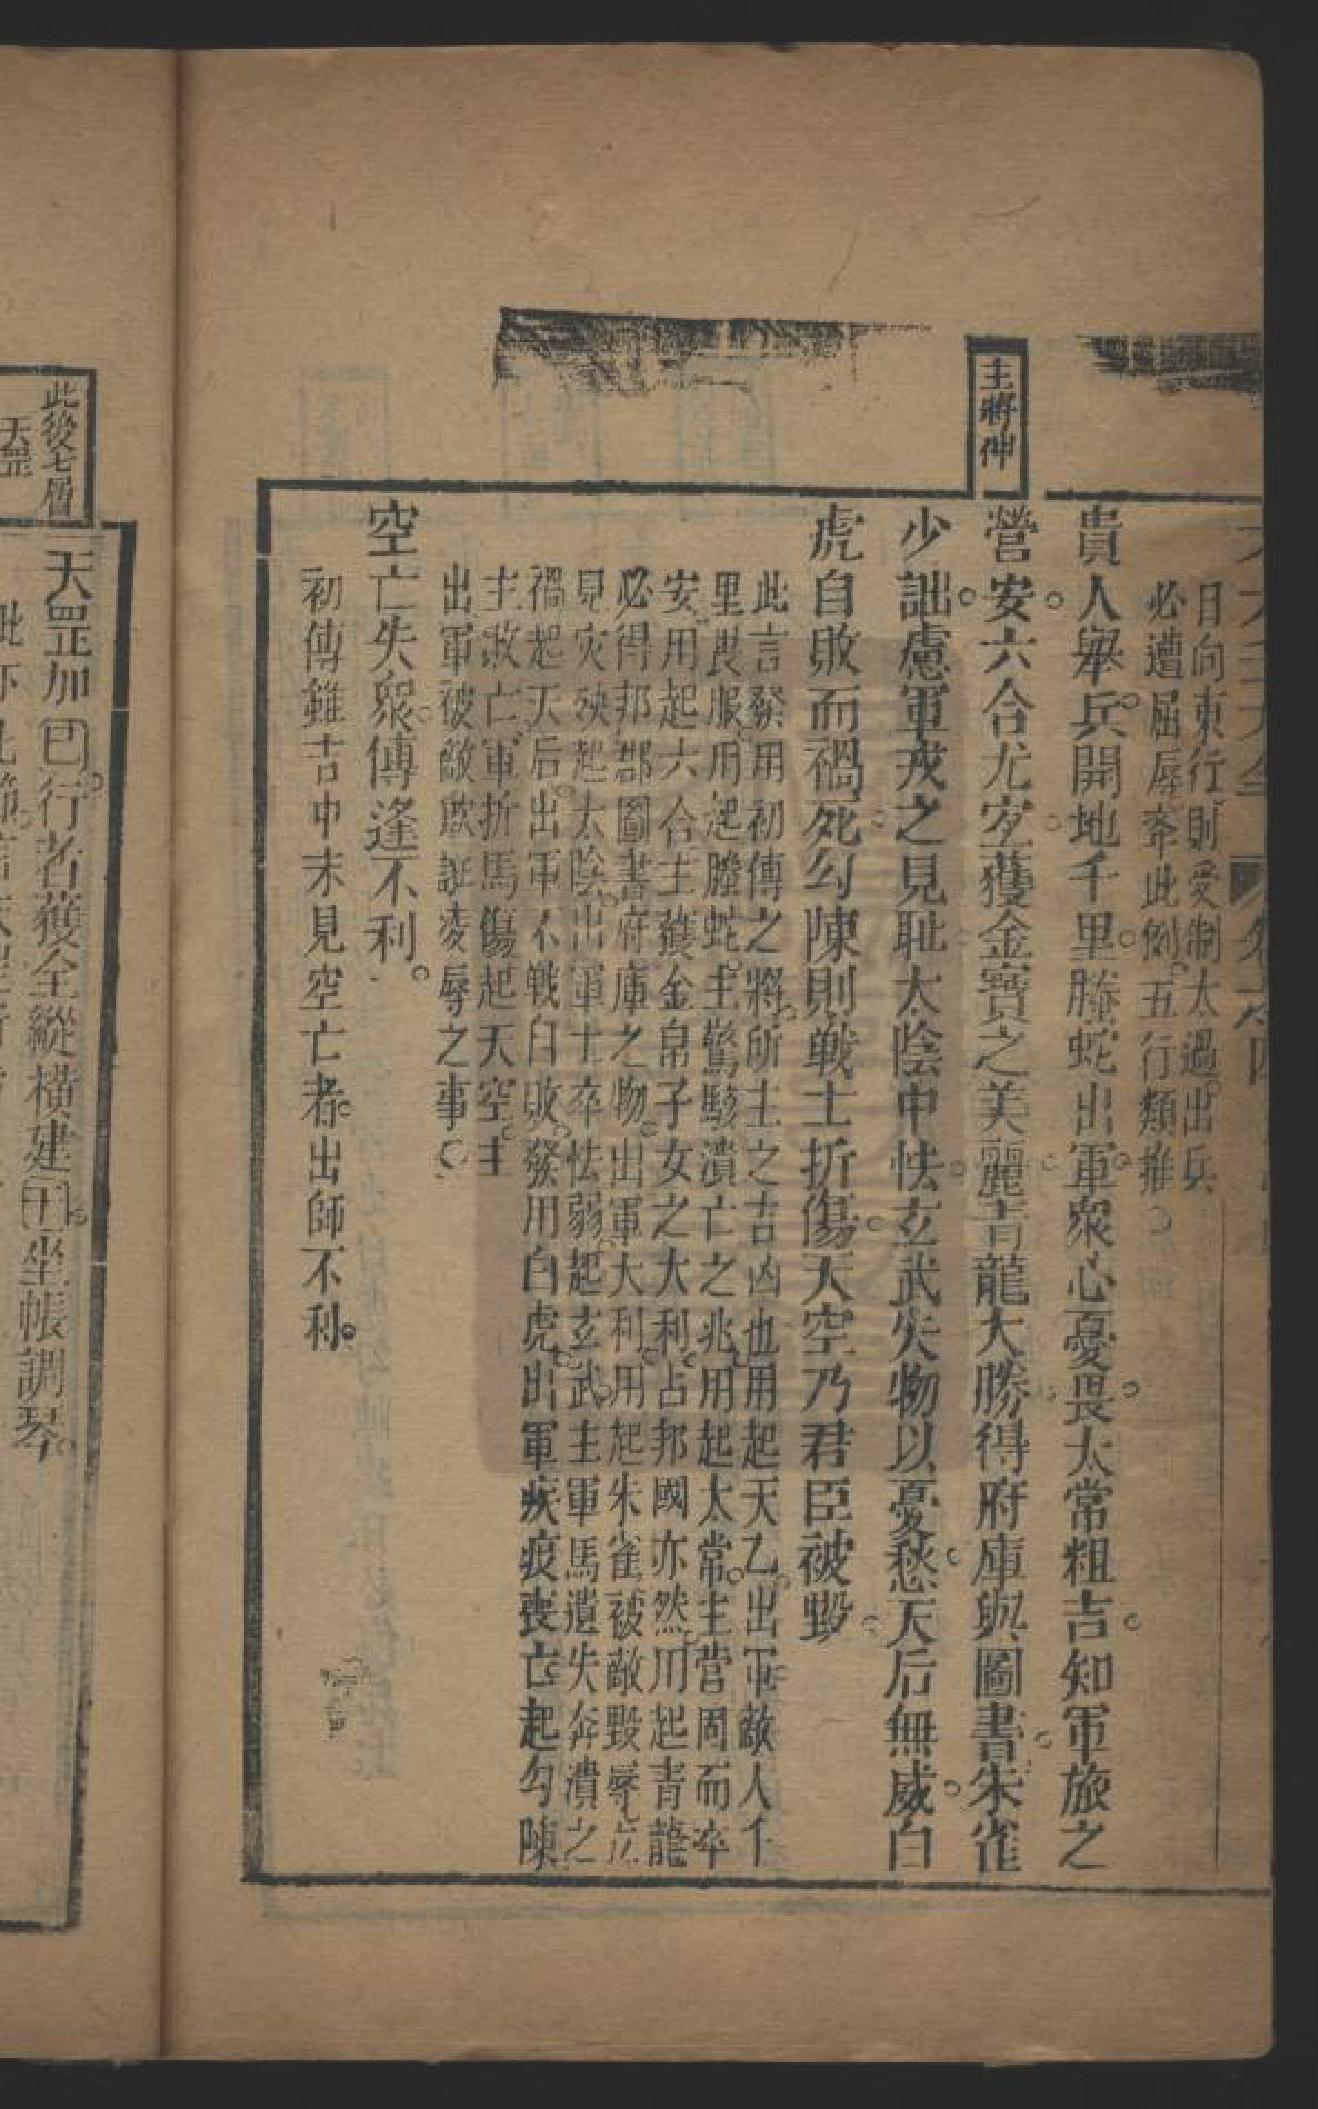 日向東行則受制太過出兵
必遭屈辱牽此例五行類推
主將神
貴人舉兵開地千里螣蛇出軍衆心憂畏太常粗吉知軍旅之
營安六合尤宜獲金寶之美麗青龍大勝得府庫與圖書朱雀
少詘慮軍戎之見恥太陰中怯玄武失物以憂愁天后無威白
虎自敗而禍死勾陳則戰士折傷天空乃君臣被毀
此言發用初傳之將所主之吉凶也用起天乙出軍敵人千
里畏服用起螣蛇主驚駭潰亡之兆用起太常主營固而卒
安用起六合主獲金帛子女之大利占邦國亦然用起青龍
必得邦郡圖書府庫之物出軍大利用起朱雀被敵毀辱立
見灾殃起太陰出軍士卒怯弱起玄武主軍馬遺失奔潰之
禍起天后出軍不戰自敗發用白虎出軍疾疫喪亡起勾陳
主敗亡軍折馬傷起天空主
出軍被敵欺誑凌辱之事
空亡失衆傳逢不利
初傳雖吉中末見空亡者出師不利
此後七盾
天罡
天罡加巳行者獲全縱横建十坐帳調琴